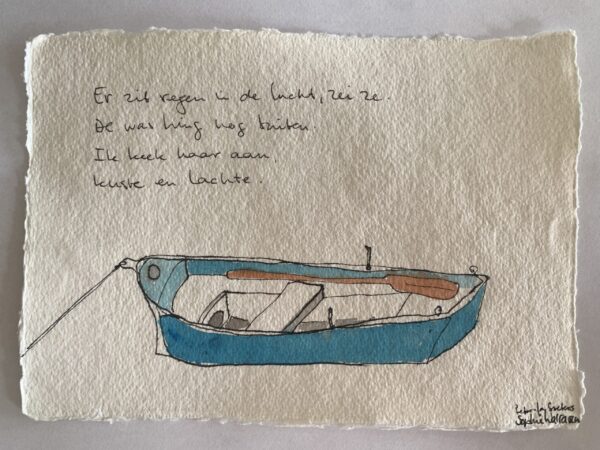 Er zit regen in de lucht, zei ze.
De was hing nog buiten.
Ik keek haar aan,
kuste en lachte.